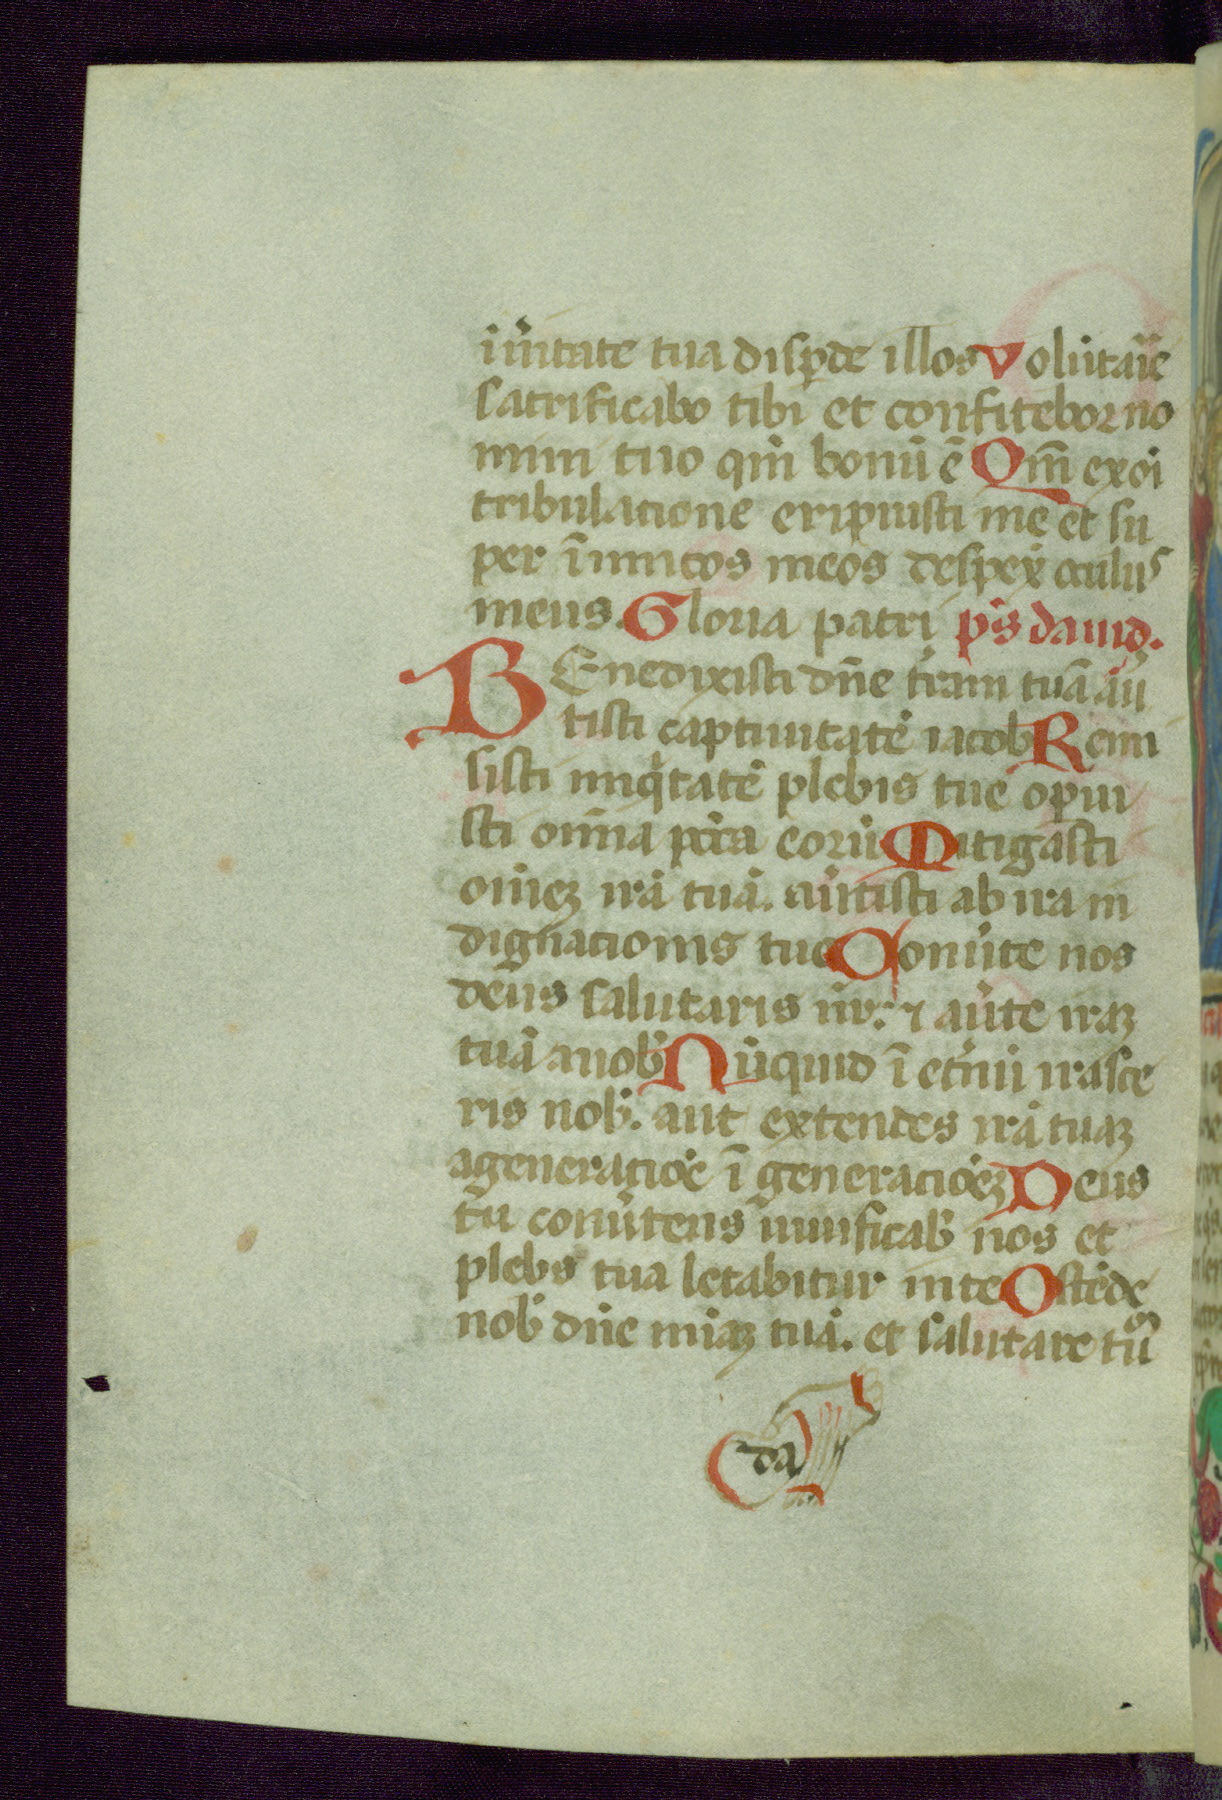 i ūitate tua disꝑde illos Volūtarie
sacrificabo tibi et confitebor no
mini tuo qm̄ bonū ē Qm̄ ex oī
tribulacione eripuisti me et su
per īimicos meos despex̄ oculus
meus. Gloria patri ps̄ dauid.
BEnedixisti dn̄e t̄ram tuā aū
tisti captiuitatē iacob Remi
sisti iniqͥtatē plebis tue opui
sti oīa pc̄ta eorū Mitigasti
oīnez irā tuā. aūtisti ab ira in
dignacionis tue Conūte nos
deus salutaris nr̄. ⁊ aūte iraz
tuā a nob̄ Nūquid ī et̄nū irasce
ris nob̄. aut extendes irā tuaz
a generacōe ī generacōez Deus
tū conūtens uiuificab̄ nos et
plebs tua letabitur in te Ostēde
nob̄ dn̄e miaz tuā. et salutare tuū
da